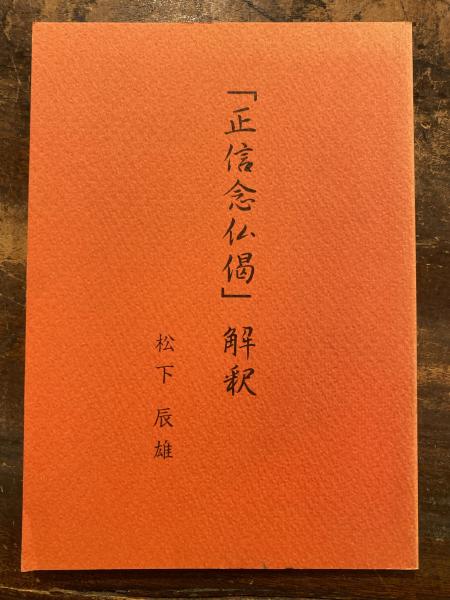 「正信念仏偈」解釈
松下辰雄